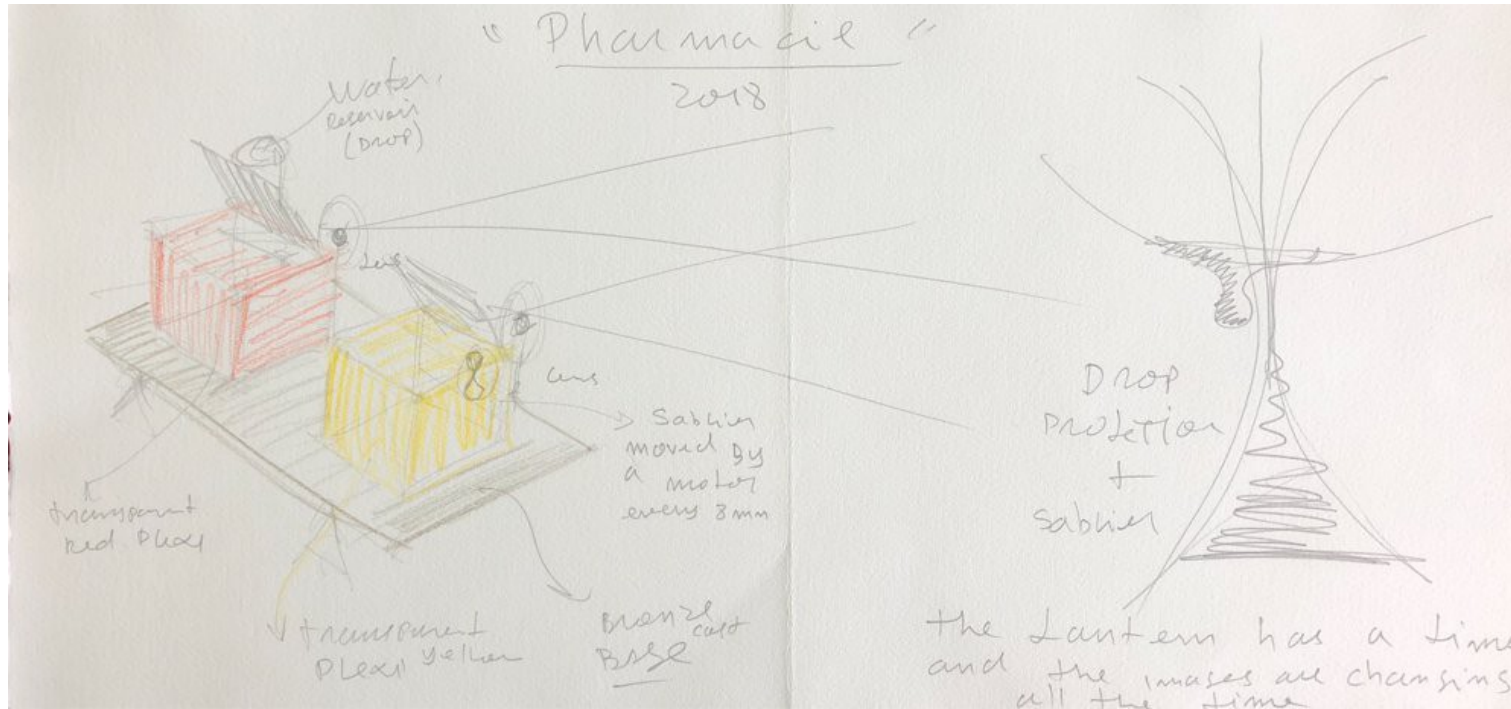 "Pharmacie"
2018
Water
Reservoir
(DROP)
Lens
Lens
Sablier
moved By
a motor
every 3mm
transparent
Red Plexi
transparent
Plexi yellow
Bronze cast
BASE
DROP
PROJETION
+
Sablier
the Lantern has a time
and the images are changing
all the time